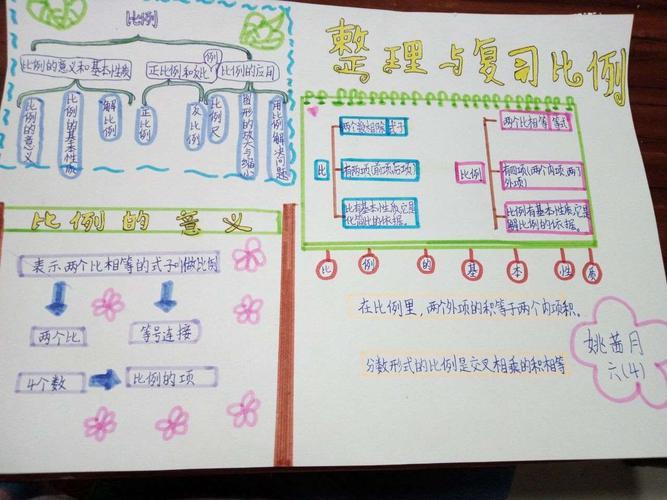 比例
比例的意义和基本性质
正比例和反比
例
比例的应用
比例的意义
比例的基本性质
解比例
正比例
反比例
比例尺
图形的放大与缩小
用比例解决问题
整理与复习比例
比
两个数相除 式子
有两项(前项后项)
比有基本性质,它是
化简比的依据。
比例
两个比相等 等式
有四项(两个内项 两个
外项)
比例有基本性质它是
解比例的依据。
比例的意义
表示两个比相等的式子叫做比例
两个比
等号连接
4个数
比例的项
比例的基本性质
在比例里,两个外项的积等于两个内项积。
分数形式的比例是交叉相乘的积相等
姚茜月
六(4)